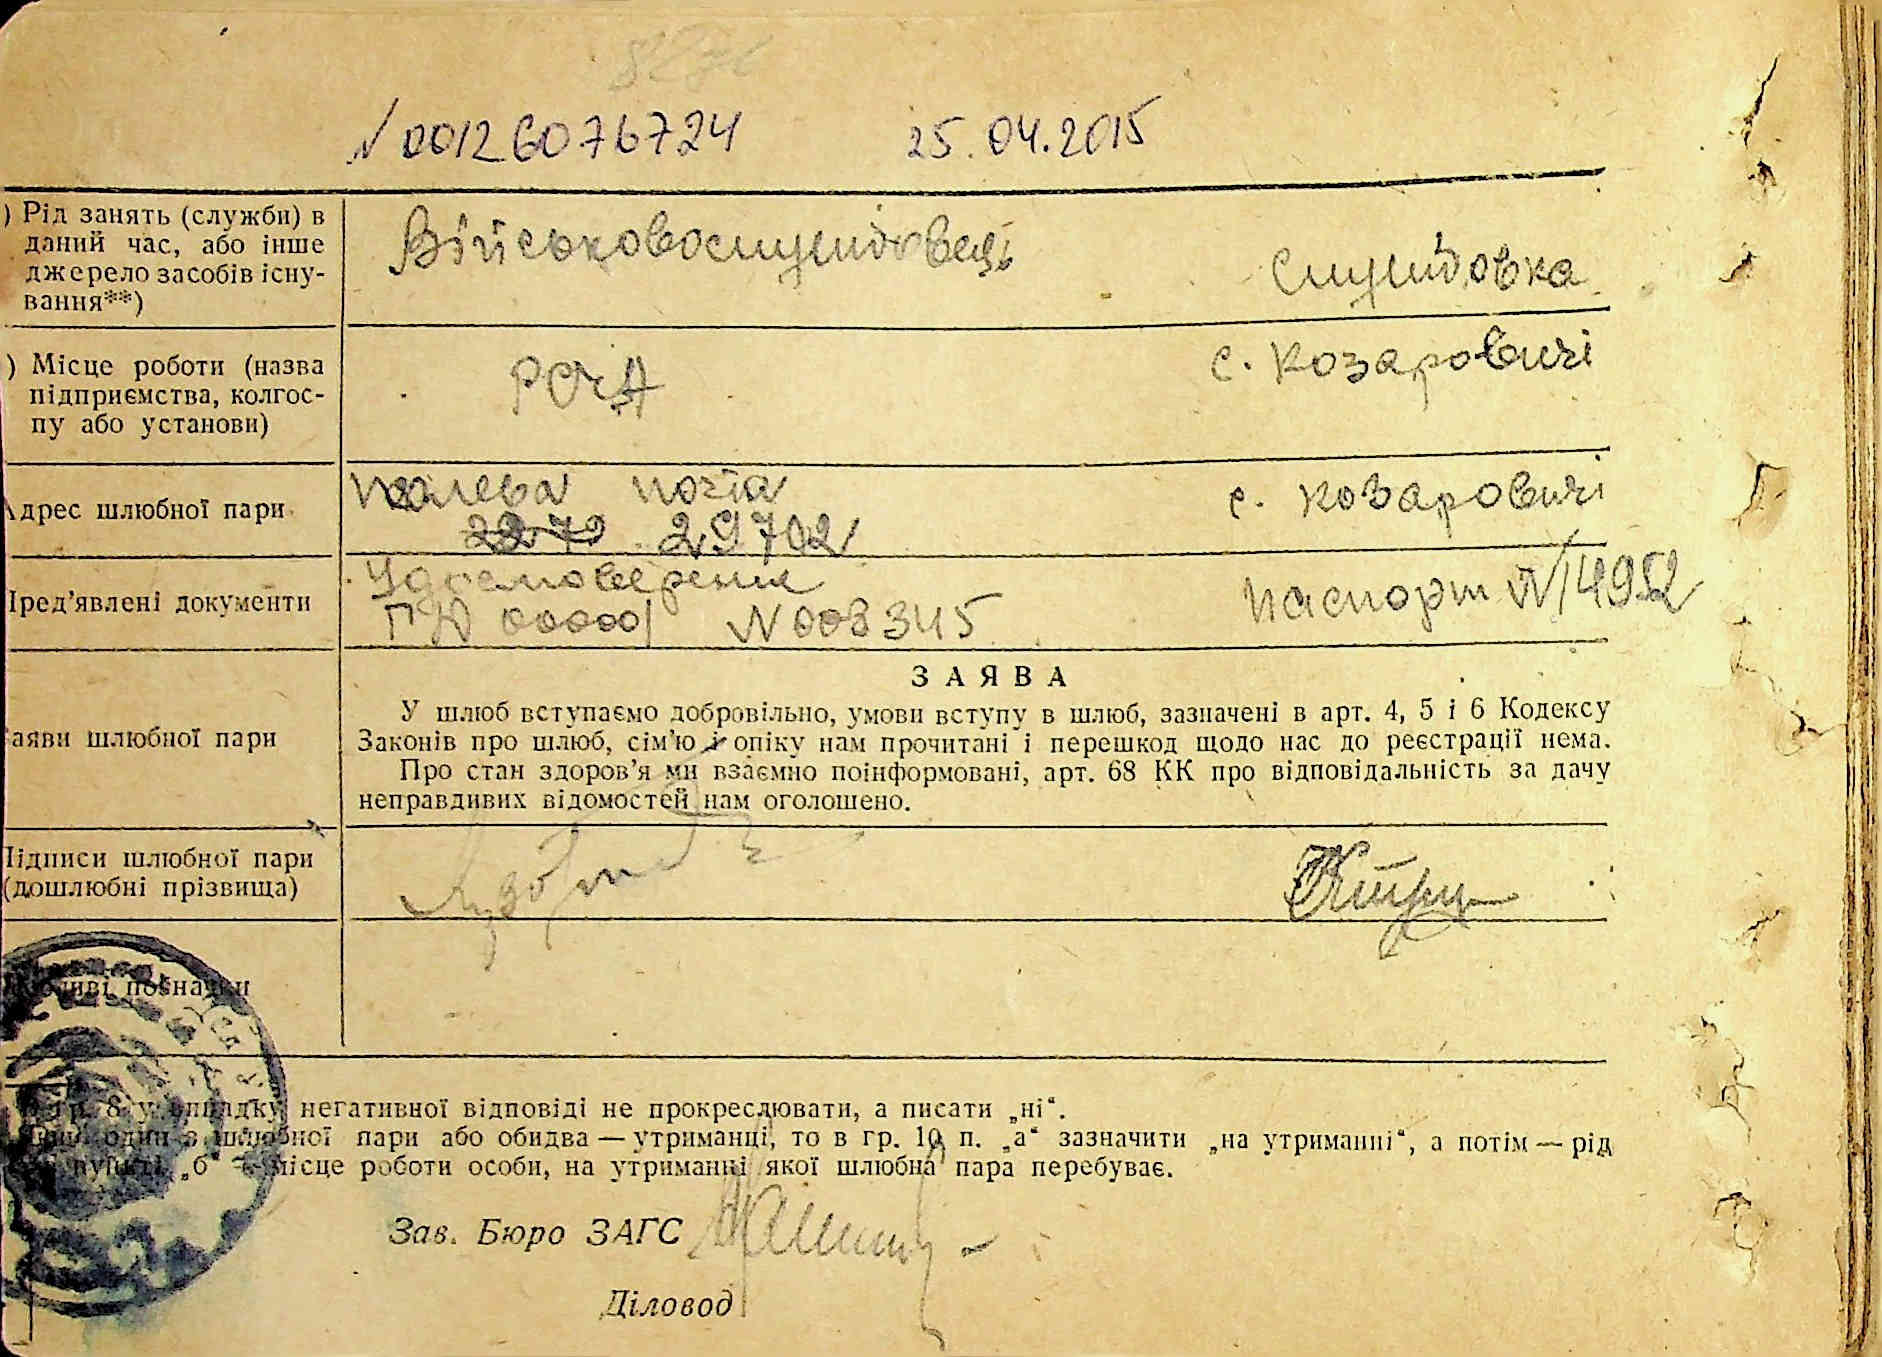 N 00126076724 25.04.2015
) Рід занять (служби) в
даний час, або інше
джерело засобів існу-
вання**)
Військовослужбовець службовка
) Місце роботи (назва
підприємства, колгос-
пу або установи)
РСЧА с. Козаровичі
Адрес шлюбної пари
Полева почта с. Козаровичі
29702
Пред’явлені документи
Удостоверение
ПЮ 00000 N 008345 паспорт N 14952
Заяви шлюбної пари
ЗАЯВА
У шлюб вступаємо добровільно, умови вступу в шлюб, зазначені в арт. 4, 5 і 6 Кодексу
Законів про шлюб, сім’ю і опіку нам прочитані і перешкод щодо нас до реєстрації нема.
Про стан здоров’я ми взаємно поінформовані, арт. 68 КК про відповідальність за дачу
неправдивих відомостей нам оголошено.
Підписи шлюбної пари
(дошлюбні прізвища)
позначки
гр. 8 у випадку негативної відповіді не прокреслювати, а писати „ні“.
один з шлюбної пари або обидва — утриманці, то в гр. 10 п. „а“ зазначити „на утриманні“, а потім — рід
пункті „б“ — місце роботи особи, на утриманні якої шлюбна пара перебуває.
Зав. Бюро ЗАГС
Діловод